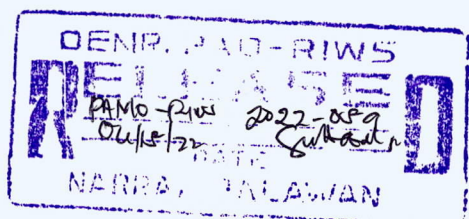 DENR, PAO-RIWS
RELEASED
PAMO-RIWS 2022-059
04/15/22
DATE
NARRA, PALAWAN